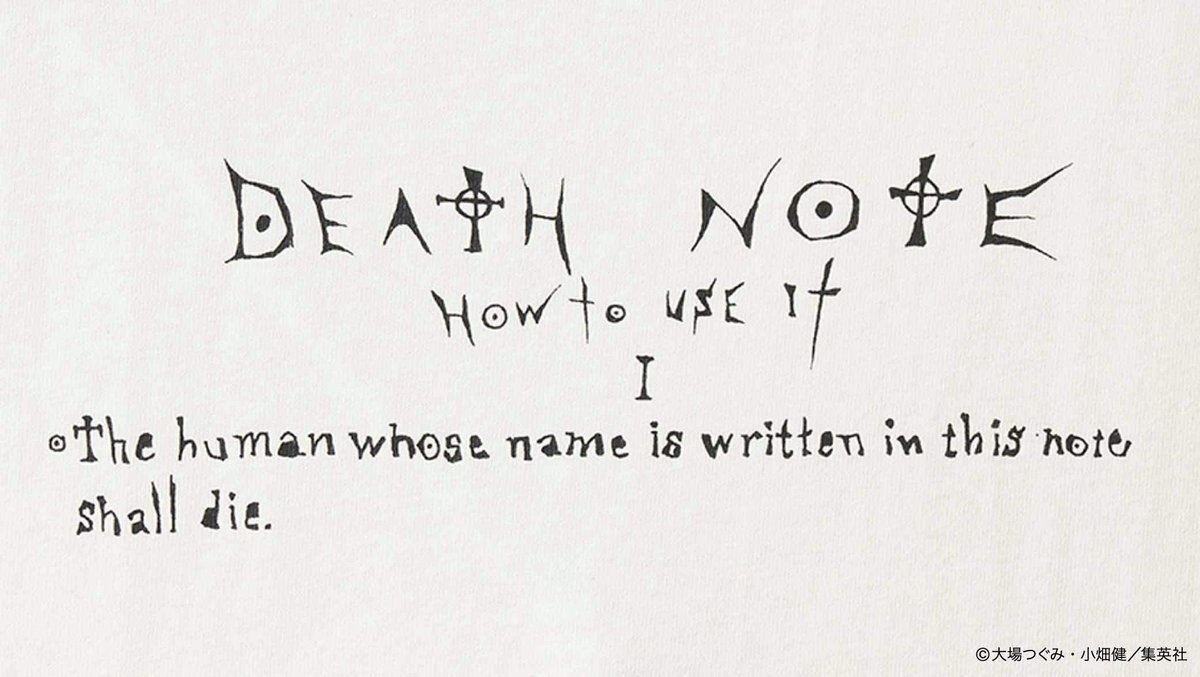 DEATH NOTE
HOW to USE It
I
⊙The human whose name is written in this note
shall die.
©大場つぐみ・小畑健／集英社